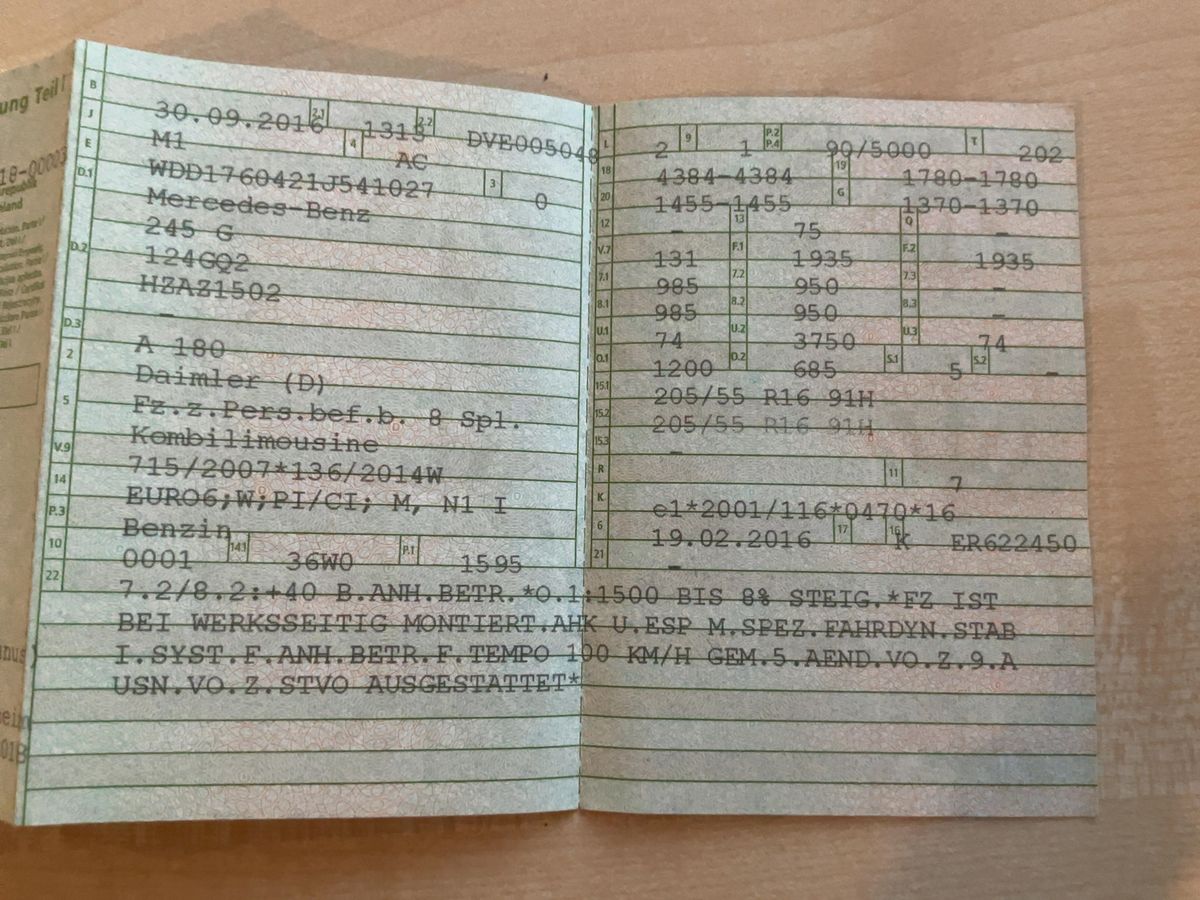 ung Teil I
B 30.09.2016 2.1 1313 2.2 DVE005048
J M1 4 AC
E WDD1760421J541027 3 0
D.1 Mercedes-Benz
245 G
D.2 124GQ2
HZAZ1502
-
D.3 A 180
2 Daimler (D)
5 Fz.z.Pers.bef.b. 8 Spl.
Kombilimousine
V.9 715/2007*136/2014W
14 EURO6;W;PI/CI; M, N1 I
P.3 Benzin
10 0001 14.1 36W0 P.1 1595
L 2 9 1 P.2 P.4 90/5000 T 202
18 4384-4384 19 1780-1780
20 1455-1455 G 1370-1370
12 - 13 75 Q -
V.7 131 F.1 1935 F.2 1935
7.1 985 7.2 950 7.3 -
8.1 985 8.2 950 8.3 -
U.1 74 U.2 3750 U.3 74
O.1 1200 O.2 685 S.1 5 S.2 -
15.1 205/55 R16 91H
15.2 205/55 R16 91H
15.3 -
R 11 7
K e1*2001/116*0470*16
6 19.02.2016 17 K 16 ER622450
21 -
22 7.2/8.2:+40 B.ANH.BETR.*O.1:1500 BIS 8% STEIG.*FZ IST
BEI WERKSSEITIG MONTIERT.AHK U.ESP M.SPEZ.FAHRDYN.STAB
I.SYST.F.ANH.BETR.F.TEMPO 100 KM/H GEM.5.AEND.VO.Z.9.A
USN.VO.Z.STVO AUSGESTATTET*